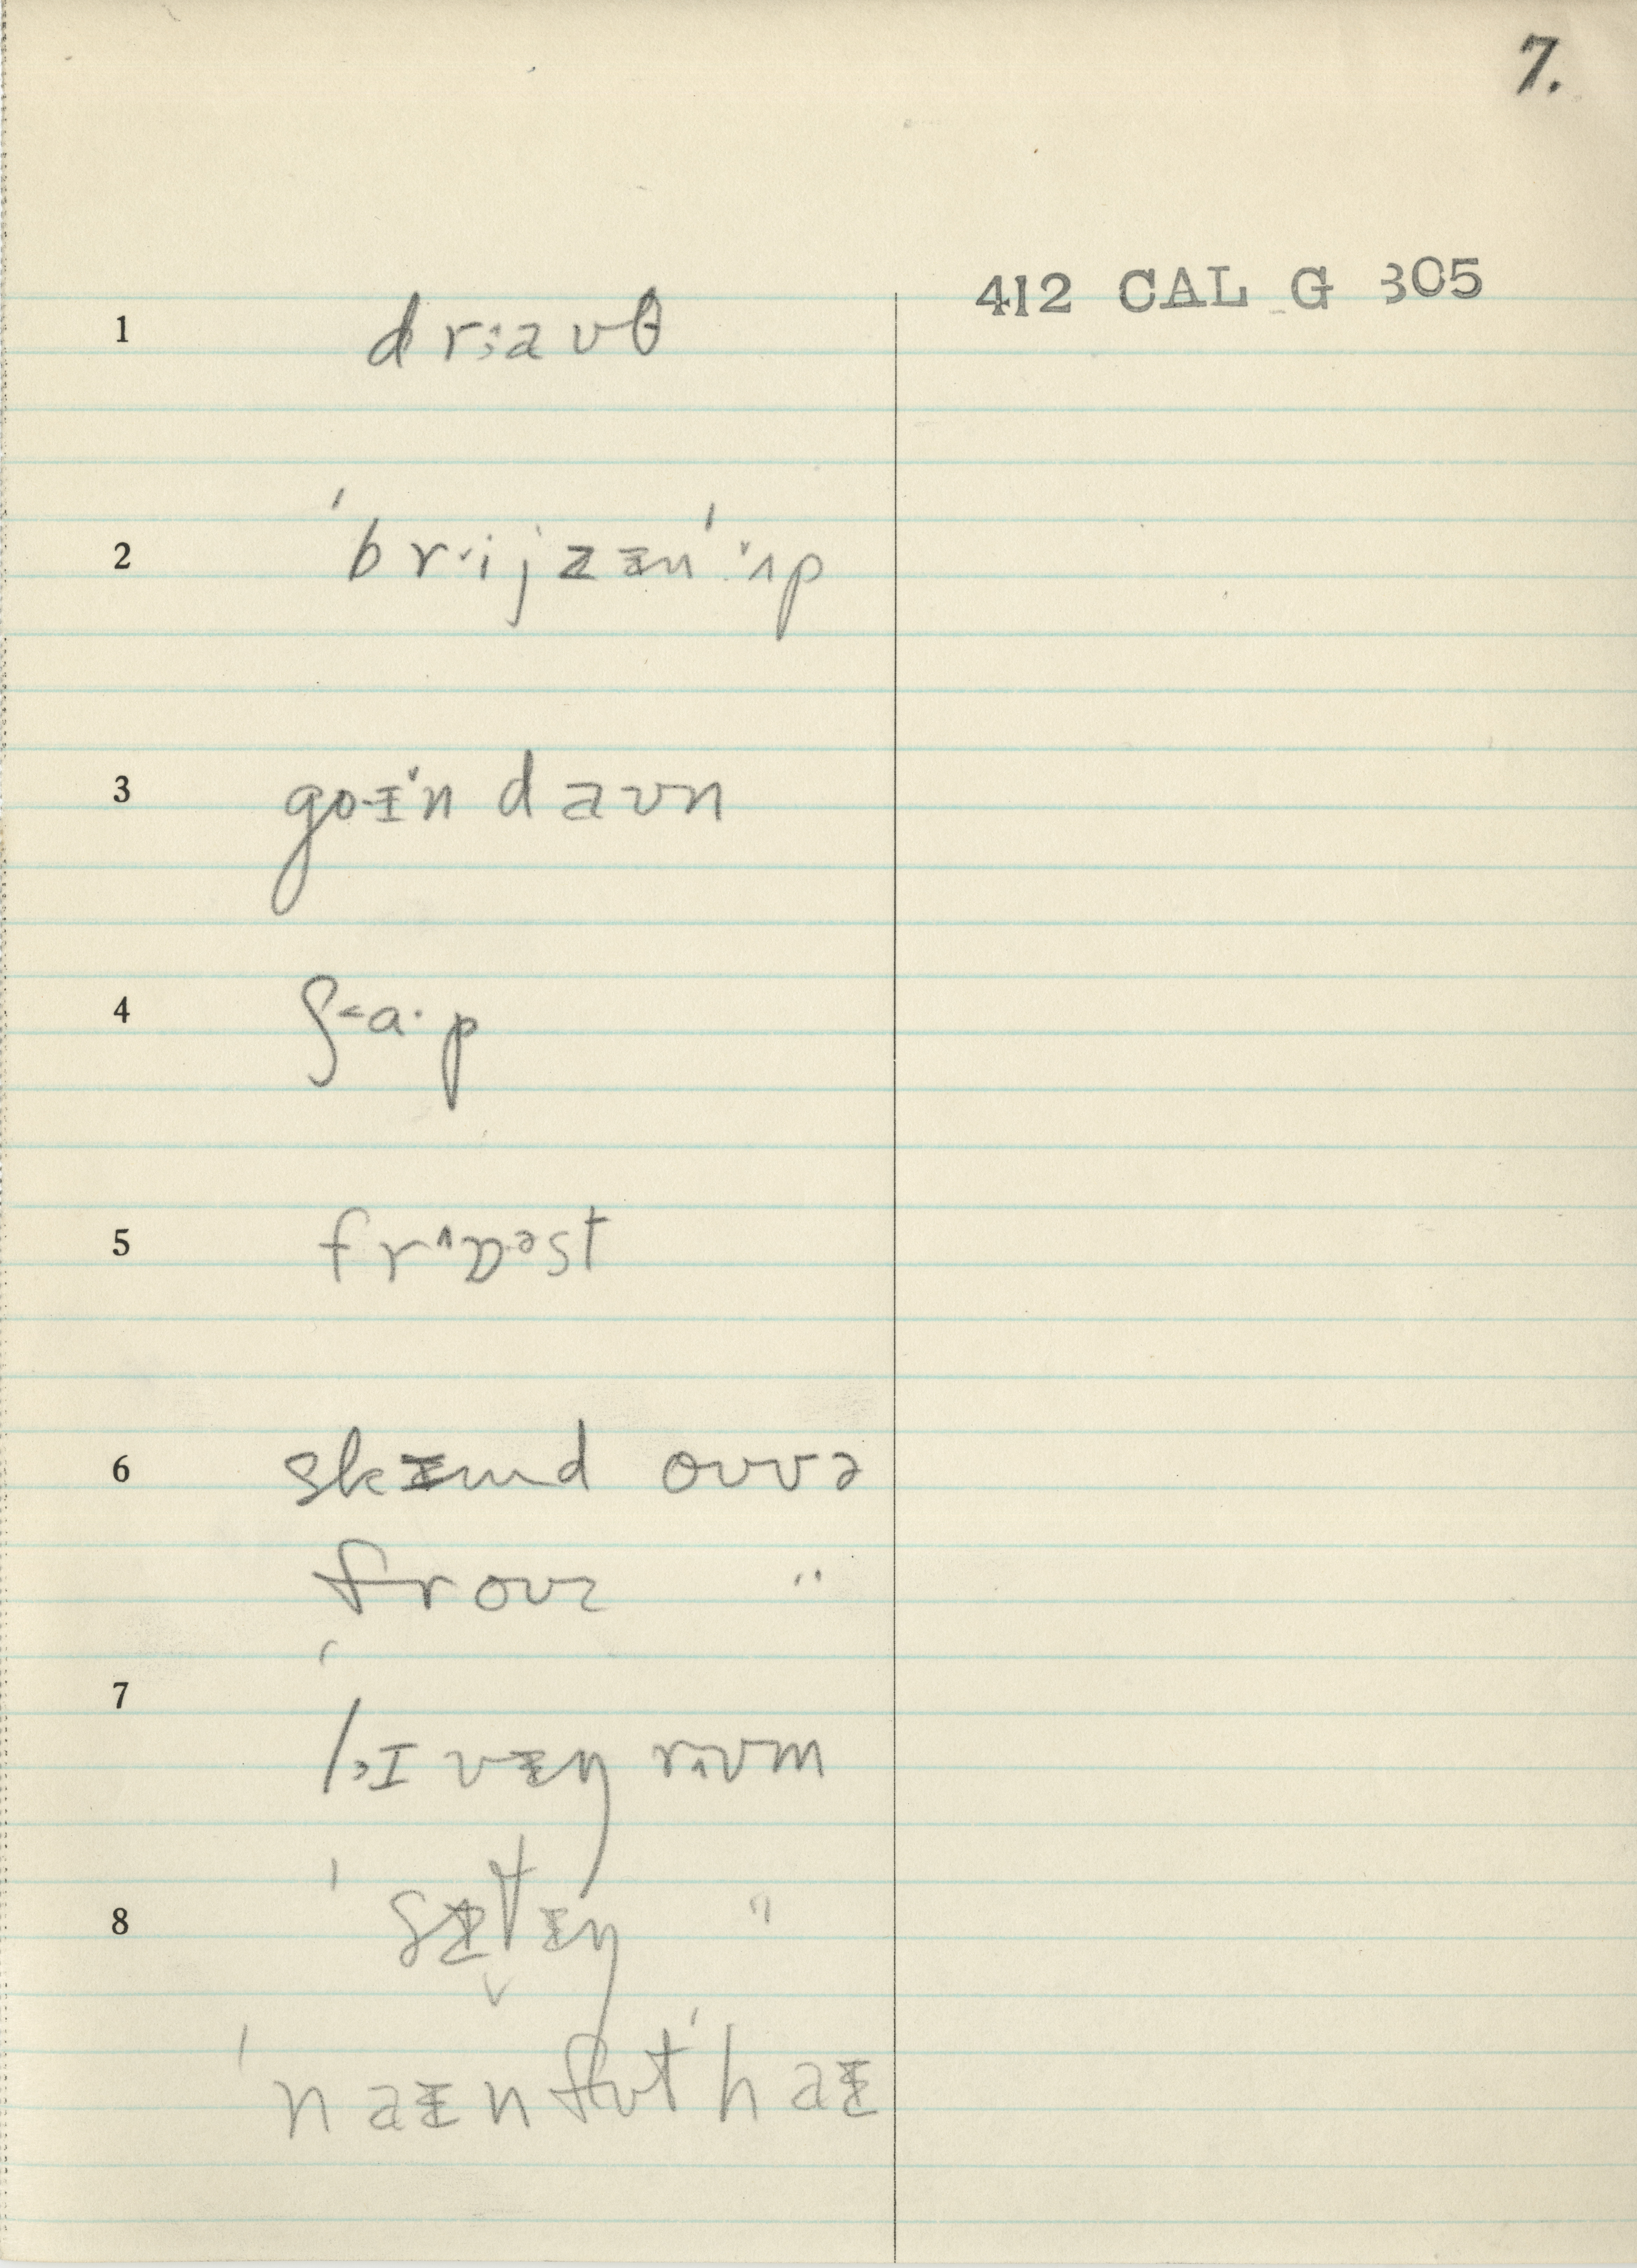 7.
412 CAL G 305
1 drːaʊθ
2 ˈbr˅ijzɨnˈ˅ʌp
3 goɨ˅n daʊn
4 ʃ˂ɑ·p
5 fr˄ɒəst
6 skɨmd oʊvə
froʊz "
7 ˈl˒ɪvɨŋ rʌʊm
8 ˈsɨtɨŋ "
ˈnaɨnfʊtˈhaɨ